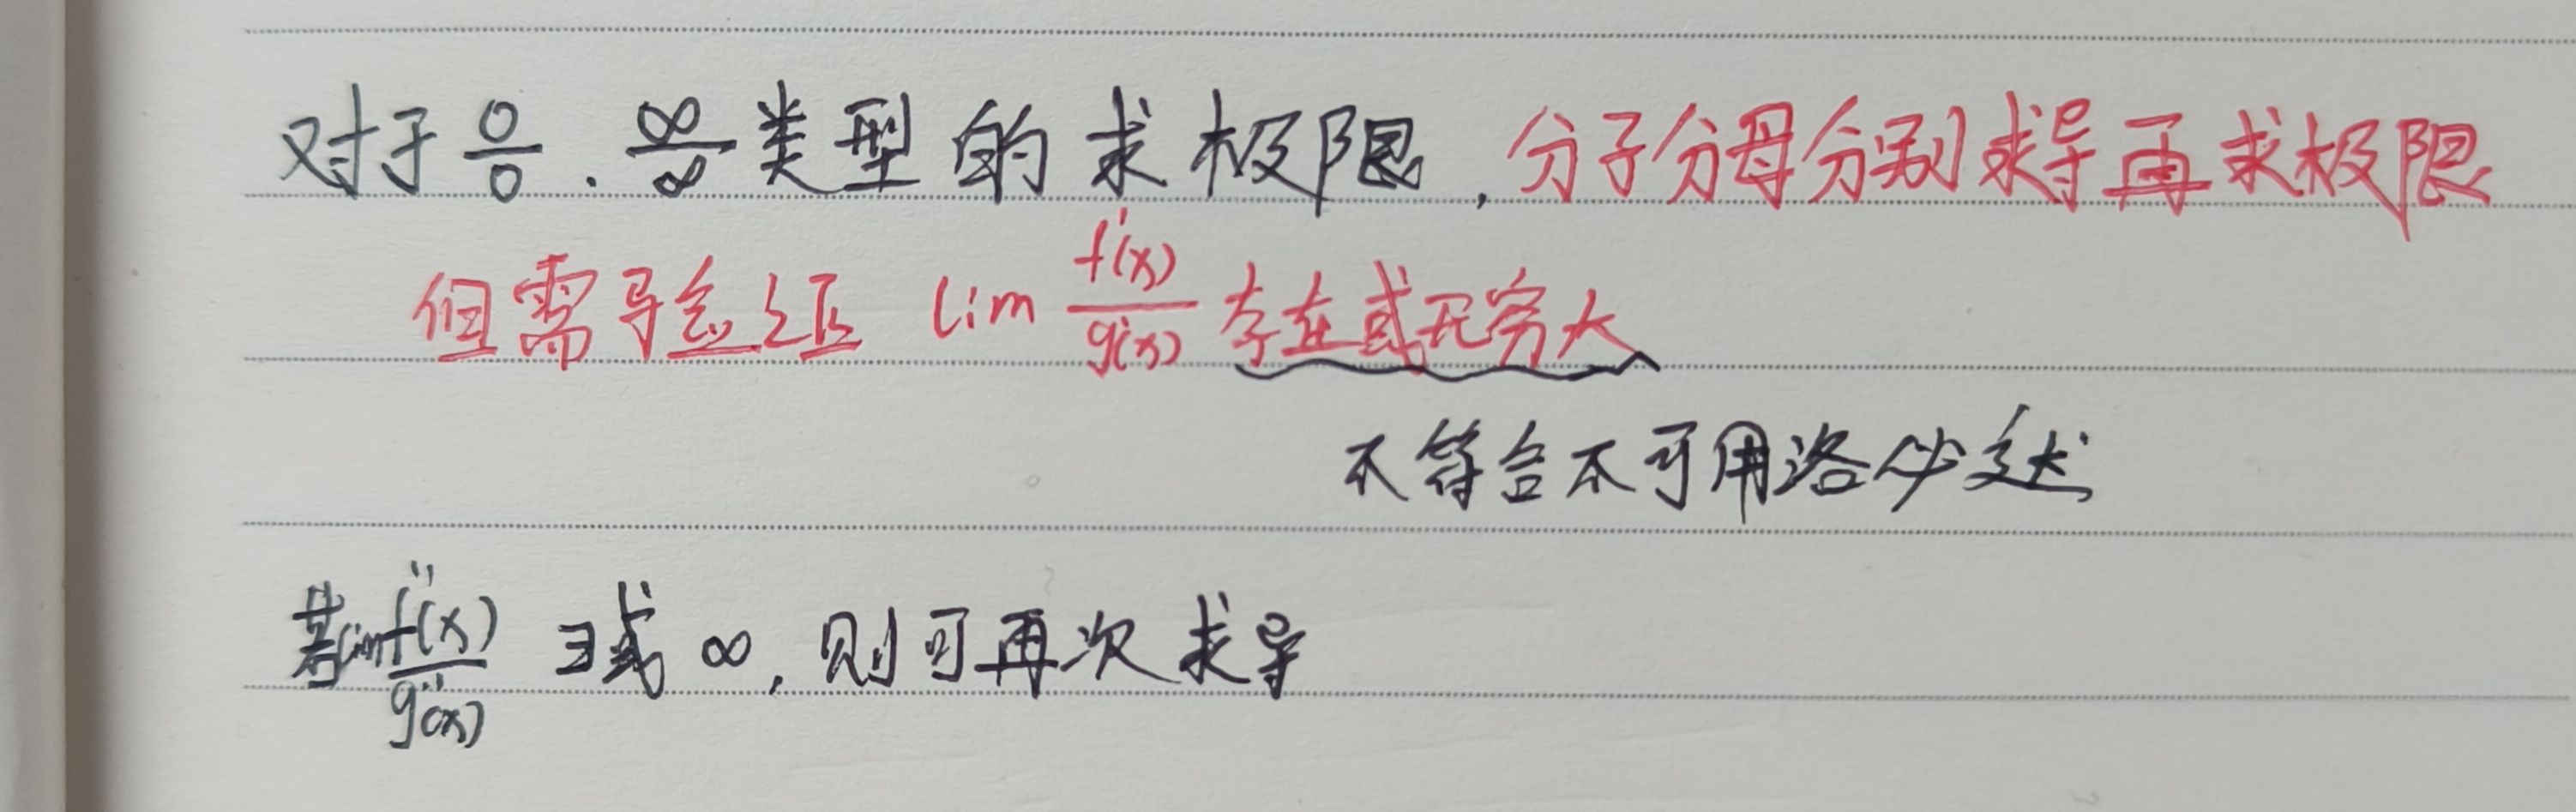 对于 0/0 . ∞/∞ 类型的求极限,分子分母分别求导再求极限
但需验证 lim f'(x)/g'(x) 存在或无穷大
不符合不可用洛必达
若lim f''(x)/g''(x) ∃或 ∞,则可再次求导